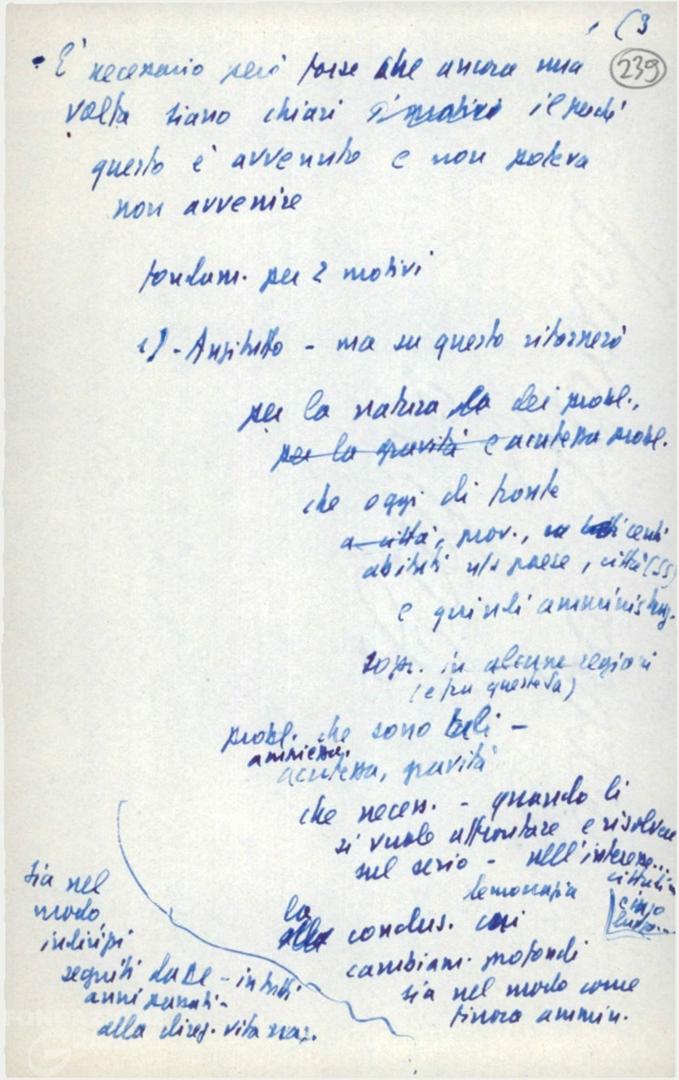 (3
239
• E' necessario però forse che ancora una
volta siano chiari i motivi il perché
questo è avvenuto e non poteva
non avvenire
fondam. per 2 motivi
1) - Anzitutto - ma su questo ritornerò
per la natura dei probl.,
per la gravità e acutezza probl.
che oggi di fronte
a città, prov., centi
abitati n/s paese, città (SS)
e quindi amministraz.
sopr. in alcune regioni
(e fra queste la)
probl. che sono tali -
ampiezza,
acutezza, gravità
che necess. - quando li
si vuole affrontare e risolvere
sul serio - nell'interesse..
cittadi
democrazia
la conclus. così
cambiam. profondi
sia nel modo come
finora ammin.
sia nel
modo
indirizzi
seguiti da DC - in tutti
anni passati -
alla direz. vita naz.
FONDAZ
G